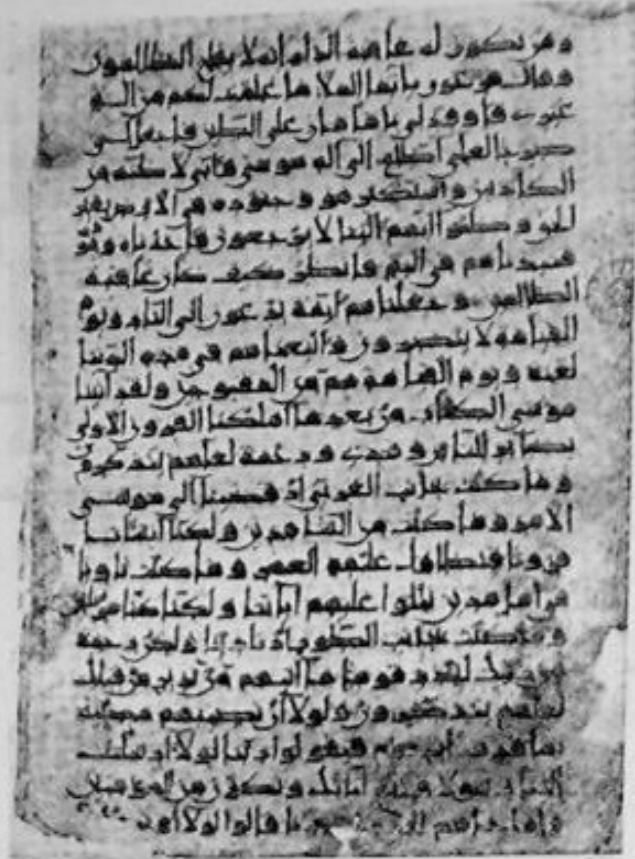 ومن تكون له عاقبة الدار انه لا يفلح الظالمون
وقال فرعون يا ايها الملا ما علمت لكم من اله
غيرى فاوقد لى يا هامان على الطين فاجعل لى
صرحا لعلى اطلع الى اله موسى وانى لاظنه من
الكاذبين واستكبر هو وجنوده فى الارض بغير
الحق وظنوا انهم الينا لا يرجعون فاخذناه
فنبذناهم فى اليم فانظر كيف كان عاقبة
الظالمين وجعلناهم ائمة يدعون الى النار ويوم
القيامة لا ينصرون واتبعناهم فى هذه الدنيا
لعنة ويوم القيامة هم من المقبوحين ولقد اتينا
موسى الكتاب من بعد ما اهلكنا القرون الاولى
بصائر للناس وهدى ورحمة لعلهم يتذكرون
وما كنت بجانب الغربى اذ قضينا الى موسى
الامر وما كنت من الشاهدين ولكنا انشانا
قرونا فتطاول عليهم العمر وما كنت ثاويا
فى اهل مدين تتلوا عليهم اياتنا ولكنا كنا مرسلين
وما كنت بجانب الطور اذ نادينا ولكن رحمة
من ربك لتنذر قوما ما اتيهم من نذير من قبلك
لعلهم يتذكرون ولولا ان تصيبهم مصيبة
بما قدمت ايديهم فيقولوا ربنا لولا ارسلت
الينا رسولا فنتبع اياتك ونكون من المومنين
فلما جاهم الحق من عندنا قالوا لولا اوتى